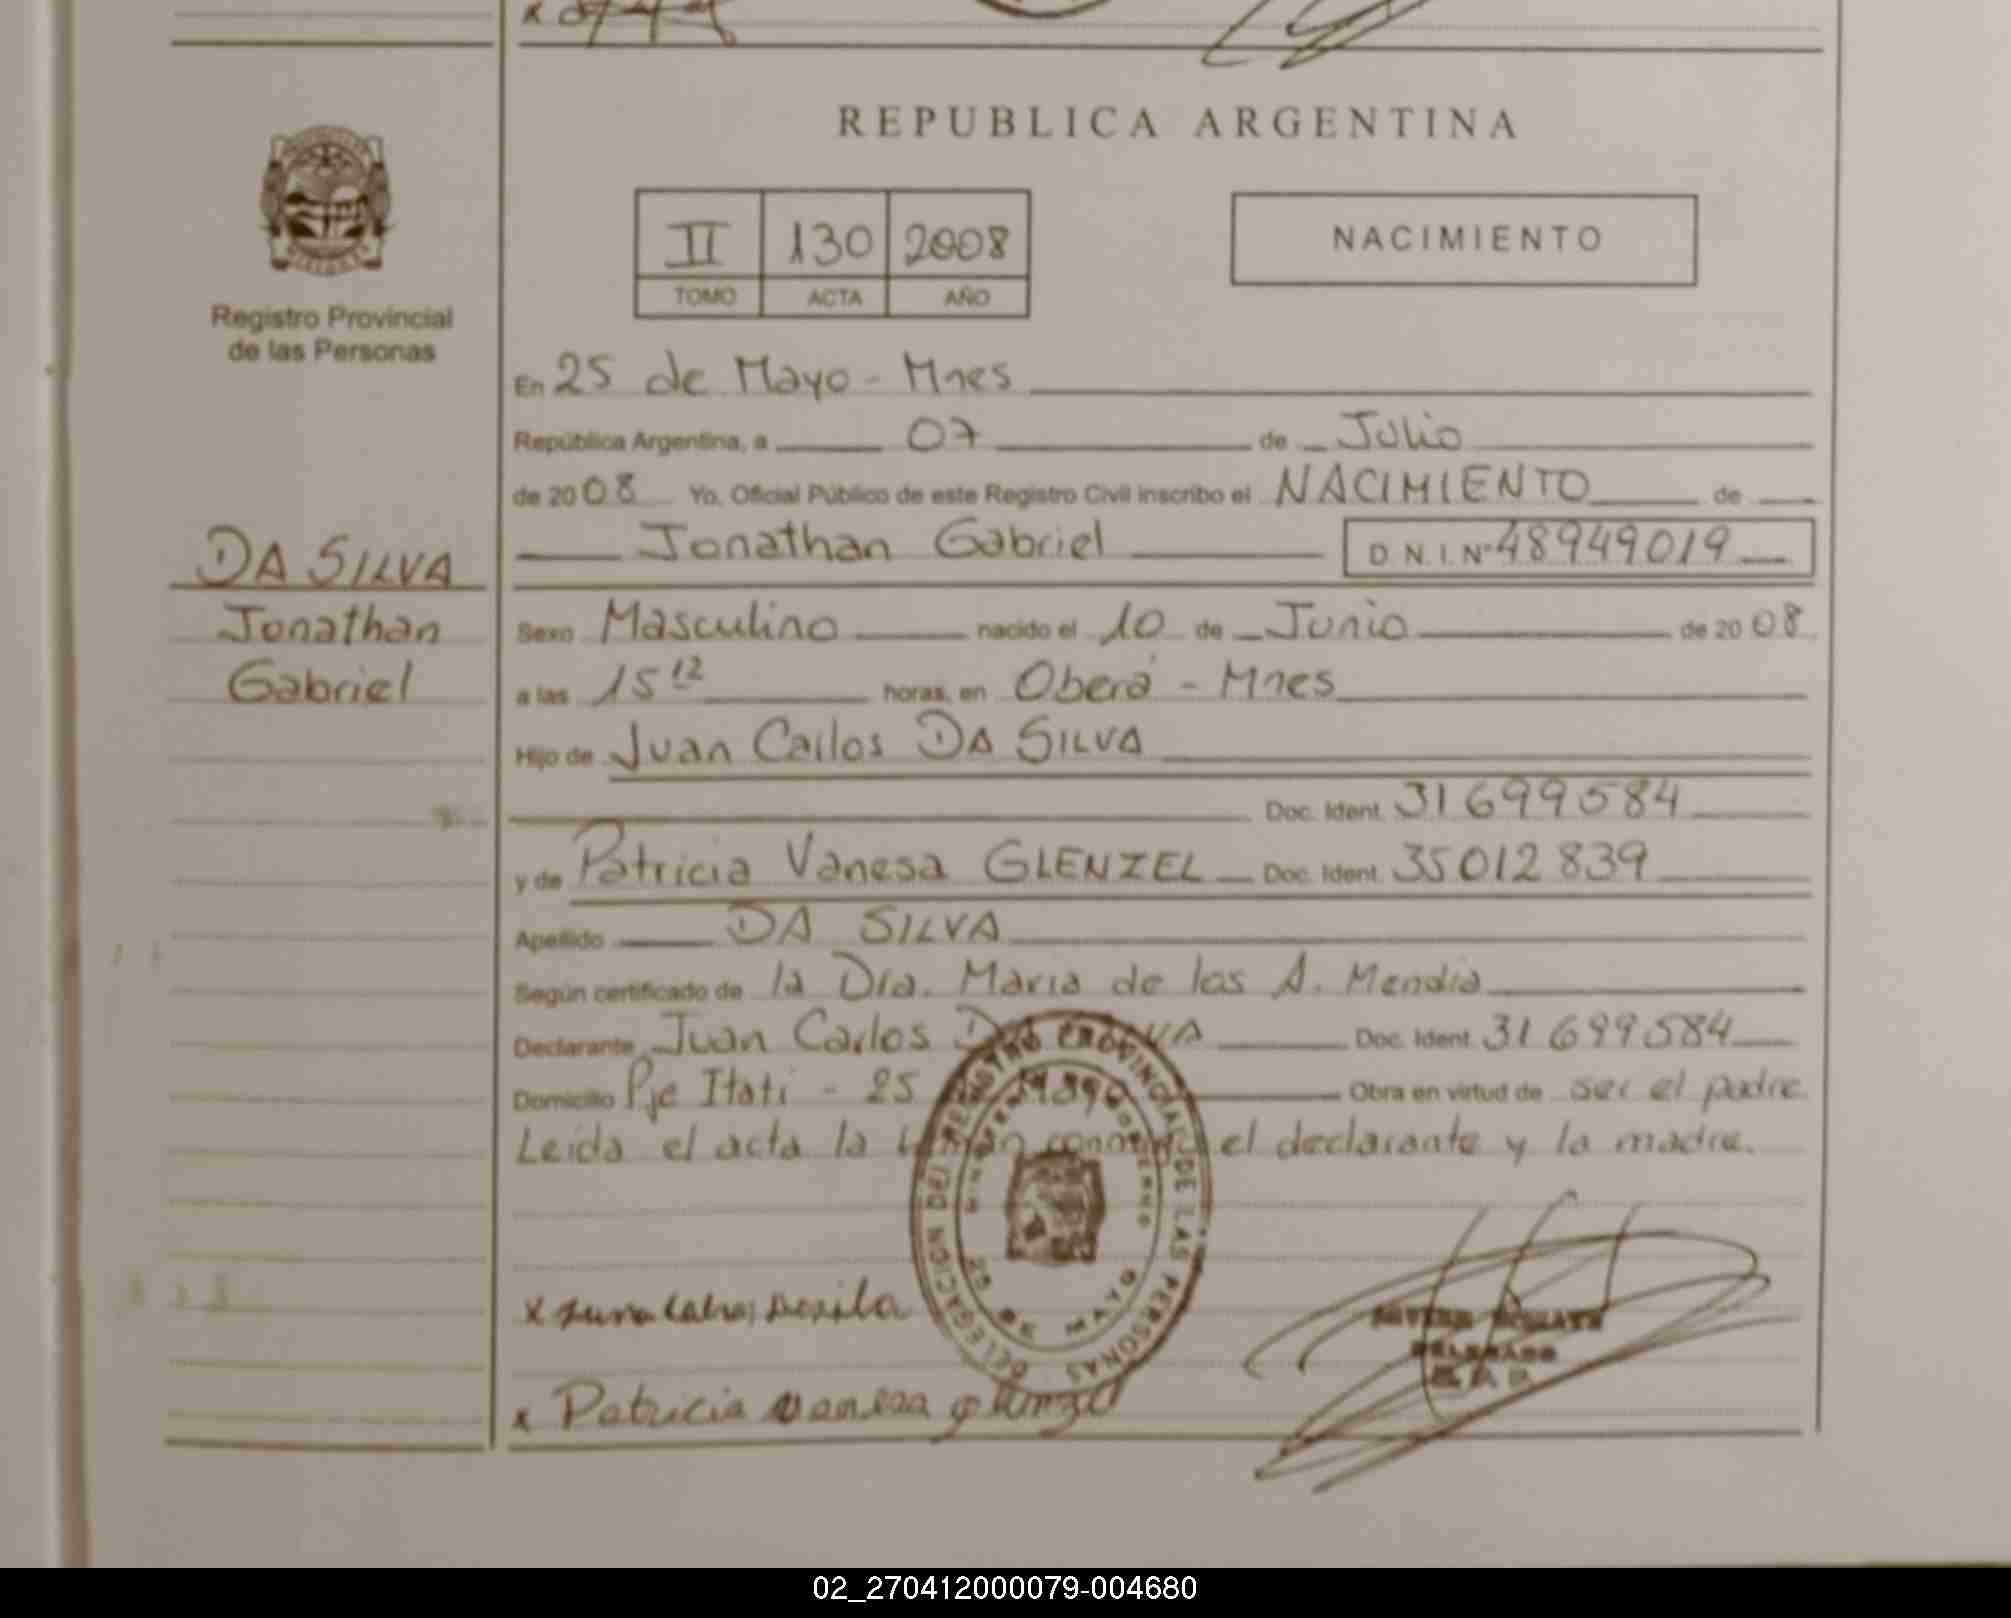 REPUBLICA ARGENTINA
II 130 2008
TOMO ACTA AÑO
NACIMIENTO
Registro Provincial
de las Personas
En 25 de Mayo - Mnes
República Argentina, a 07 de Julio
de 2008 Yo, Oficial Público de este Registro Civil inscribo el NACIMIENTO de
Jonathan Gabriel D.N.I. Nº 48949019
DA SILVA
Jonathan
Gabriel
Sexo Masculino nacido el 10 de Junio de 2008
a las 15 12 horas, en Oberá - Mnes
Hijo de Juan Carlos DA SILVA
Doc. Ident. 31699584
y de Patricia Vanesa GLENZEL Doc. Ident. 35012839
Apellido DA SILVA
Según certificado de la Dra. Maria de los A. Mendia
Declarante Juan Carlos DA SILVA Doc. Ident. 31699584
Domicilio Pje Itati - 25 Obra en virtud de ser el padre.
Leida el acta la el declarante y la madre.
DELEGACION DEL REGISTRO PROVINCIAL DE LAS PERSONAS
25 DE MAYO
x
x Patricia Vanesa
DELEGADO
02_270412000079-004680